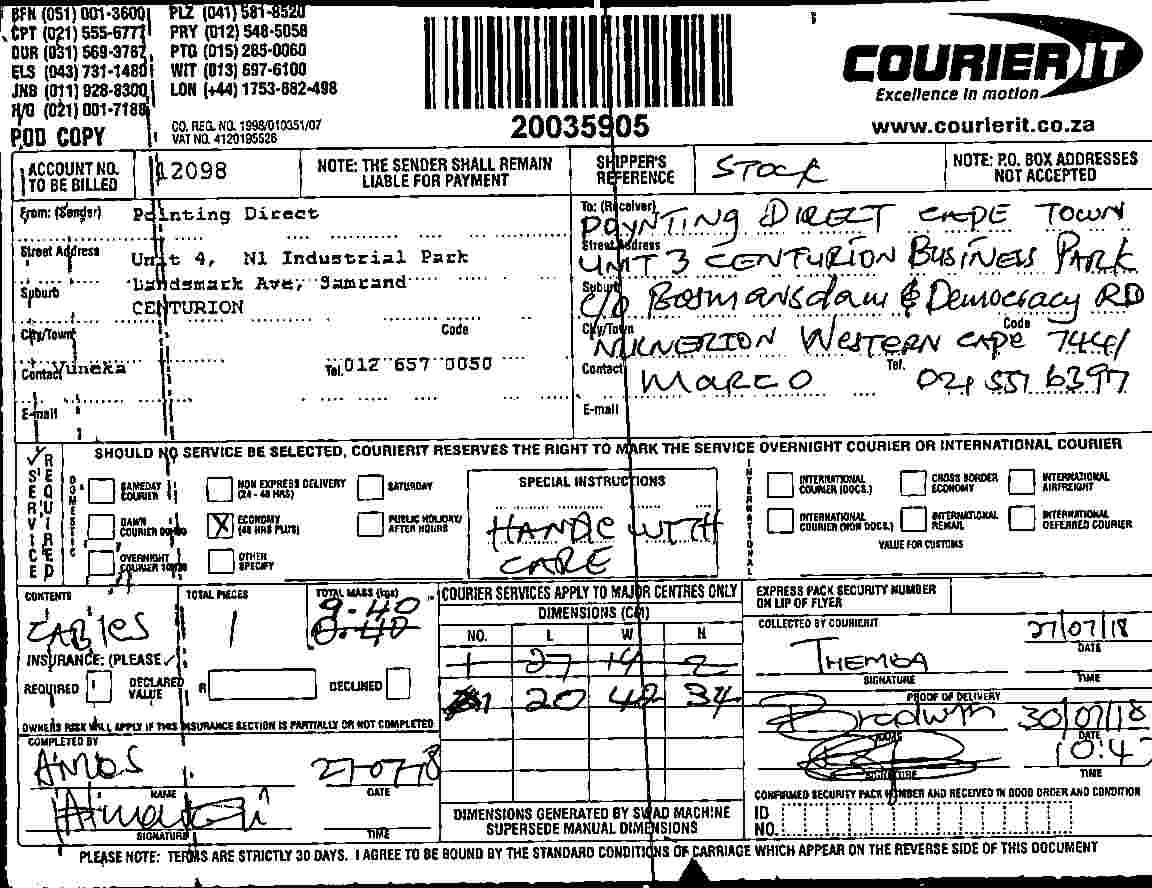 BFN (051) 001-3600 PLZ (041) 581-8520
CPT (021) 555-6777 PRY (012) 548-5058
DUR (031) 569-3762 PTG (015) 285-0060
ELS (043) 731-1480 WIT (013) 697-6100
JNB (011) 928-8300 LON (+44) 1753-682-498
H/O (021) 001-7188
POD COPY
CO. REG. NO. 1998/010351/07
VAT NO. 4120195526
20035905
COURIER IT
Excellence in motion
www.courierit.co.za
ACCOUNT NO. TO BE BILLED
12098
NOTE: THE SENDER SHALL REMAIN LIABLE FOR PAYMENT
SHIPPER'S REFERENCE
STOCK
NOTE: P.O. BOX ADDRESSES NOT ACCEPTED
From: (Sender) Pointing Direct
Street Address Unit 4, N1 Industrial Park
Suburb Landsmark Ave, Samrand
CENTURION
City/Town Code
Contact Yuneka Tel. 012 657 0050
E-mail
To: (Receiver) POYNTING DIRECT CAPE TOWN
Street Address UNIT 3 CENTURION BUSINESS PARK
Suburb C/O Bosmansdam & Democracy RD
City/Town WESTERN CAPE Code 7441
Contact MARCO Tel. 021 551 6397
E-mail
SERVICE REQUIRED
SHOULD NO SERVICE BE SELECTED, COURIERIT RESERVES THE RIGHT TO MARK THE SERVICE OVERNIGHT COURIER OR INTERNATIONAL COURIER
DOMESTIC
SAMEDAY COURIER
NON EXPRESS DELIVERY (24 - 48 HRS)
SATURDAY
DAWN COURIER
X ECONOMY (48 HRS PLUS)
PUBLIC HOLIDAY/ AFTER HOURS
OVERNIGHT COURIER
OTHER SPECIFY
SPECIAL INSTRUCTIONS
HANDLE WITH
CARE
INTERNATIONAL
INTERNATIONAL COURIER (DOCS.)
CROSS BORDER ECONOMY
INTERNATIONAL AIRFREIGHT
INTERNATIONAL COURIER (NON DOCS.)
INTERNATIONAL REMAIL
INTERNATIONAL DEFERRED COURIER
VALUE FOR CUSTOMS
CONTENTS
CABLES
TOTAL PIECES
1
TOTAL MASS (kgs)
9.40
INSURANCE: (PLEASE ✓)
REQUIRED
DECLARED VALUE R
DECLINED
OWNERS RISK WILL APPLY IF THIS INSURANCE SECTION IS PARTIALLY OR NOT COMPLETED
COMPLETED BY
AMOS 27-07-18
NAME DATE
SIGNATURE TIME
COURIER SERVICES APPLY TO MAJOR CENTRES ONLY
DIMENSIONS (CM)
NO. L W H
1 27 19 2
1 20 42 34
DIMENSIONS GENERATED BY SWAD MACHINE SUPERSEDE MANUAL DIMENSIONS
EXPRESS PACK SECURITY NUMBER ON LIP OF FLYER
COLLECTED BY COURIERIT
27/07/18
DATE
THEMBA
SIGNATURE TIME
PROOF OF DELIVERY
Bradwin 30/07/18
NAME DATE
10:47
SIGNATURE TIME
CONFIRMED SECURITY PACK NUMBER AND RECEIVED IN GOOD ORDER AND CONDITION
ID NO.
PLEASE NOTE: TERMS ARE STRICTLY 30 DAYS. I AGREE TO BE BOUND BY THE STANDARD CONDITIONS OF CARRIAGE WHICH APPEAR ON THE REVERSE SIDE OF THIS DOCUMENT